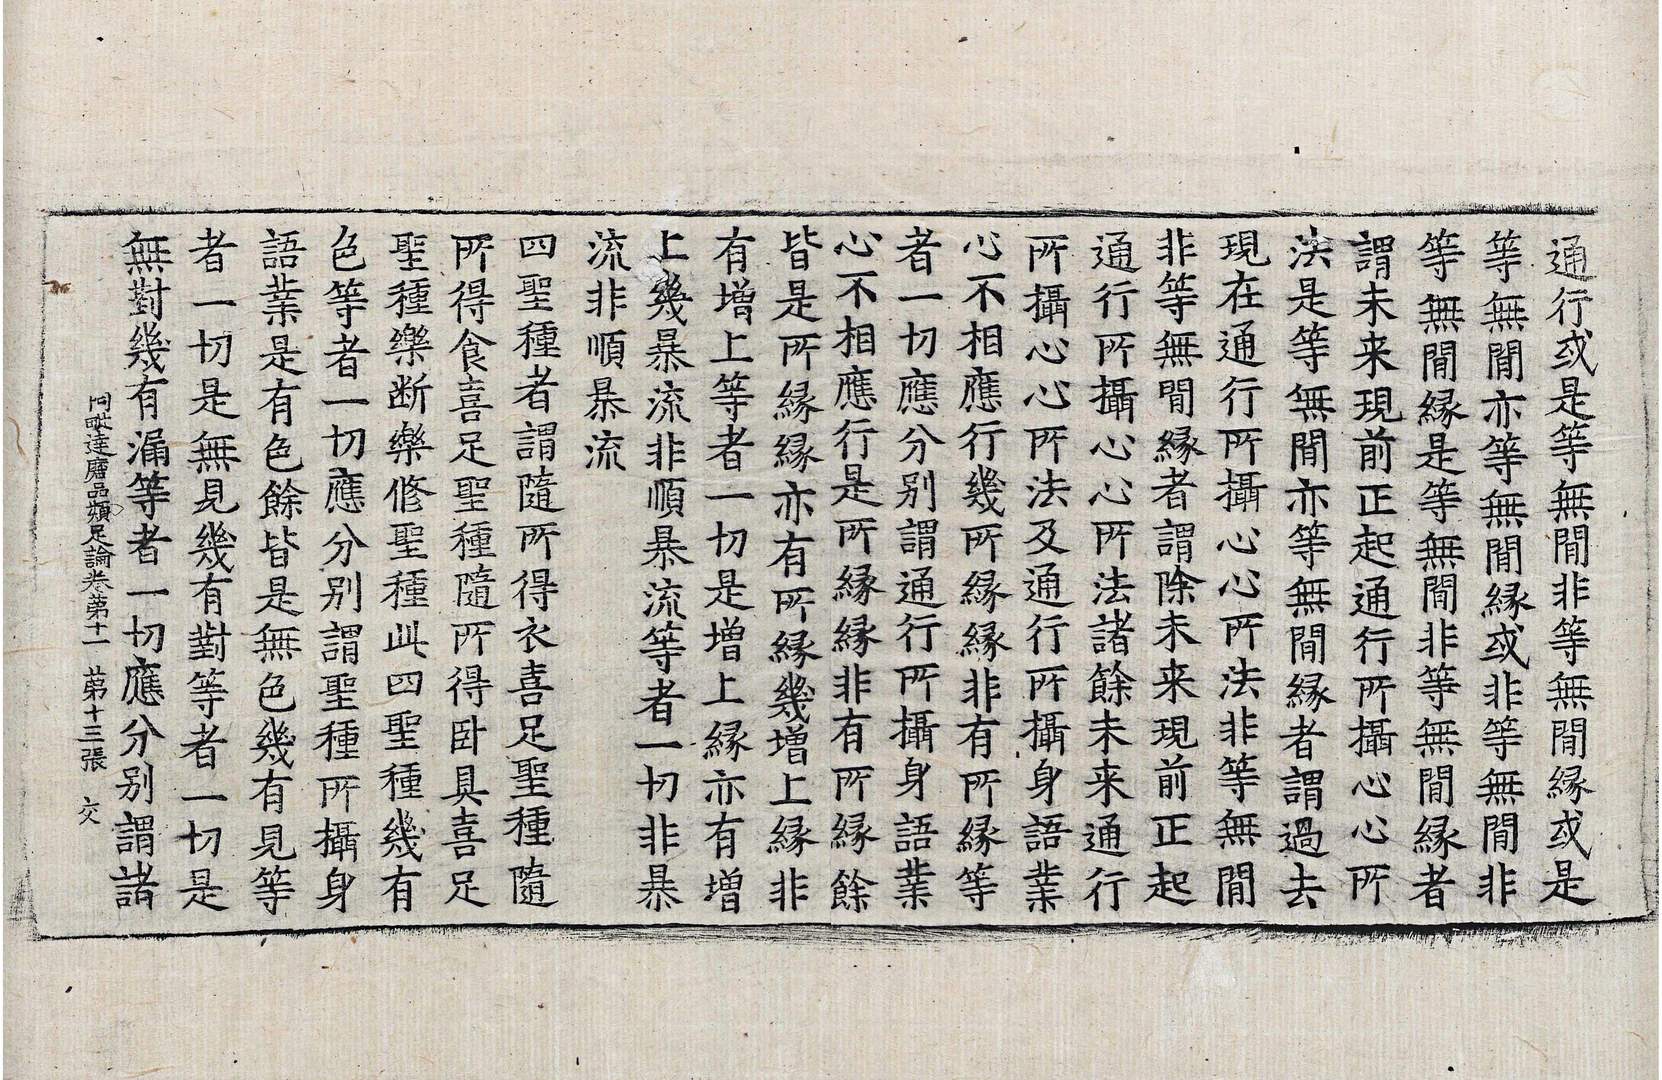 通行或是等無間非等無間縁或是
等無間亦等無間縁或非等無間非
等無間縁是等無間非等無間縁者
謂未来現前正起通行所攝心心所
法是等無間亦等無間縁者謂過去
現在通行所攝心心所法非等無間
非等無間縁者謂除未来現前正起
通行所攝心心所法諸餘未来通行
所攝心心所法及通行所攝身語業
心不相應行幾所縁縁非有所縁等
者一切應分別謂通行所攝身語業
心不相應行是所縁縁非有所縁餘
皆是所縁縁亦有所縁幾增上縁非
有增上等者一切是增上縁亦有增
上幾暴流非順暴流等者一切非暴
流非順暴流
四聖種者謂隨所得衣喜足聖種隨
所得食喜足聖種隨所得卧具喜足
聖種樂断樂修聖種此四聖種幾有
色等者一切應分別謂聖種所攝身
語業是有色餘皆是無色幾有見等
者一切是無見幾有對等者一切是
無對幾有漏等者一切應分別謂諸
阿毗達磨品類足論卷第十一　第十三張　交